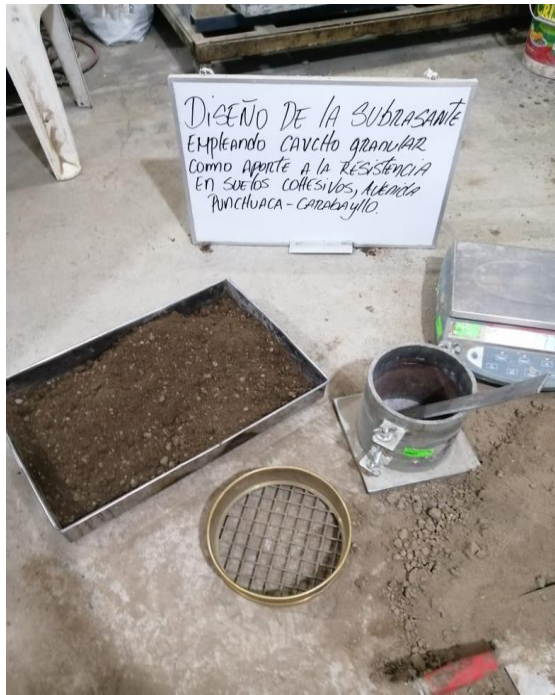 DISEÑO DE LA SUBRASANTE
EMPLEANDO CAUCHO GRANULAR
COMO APORTE A LA RESISTENCIA
EN SUELOS COHESIVOS, AVENIDA
PUNCHUACA-CARABAYLLO.